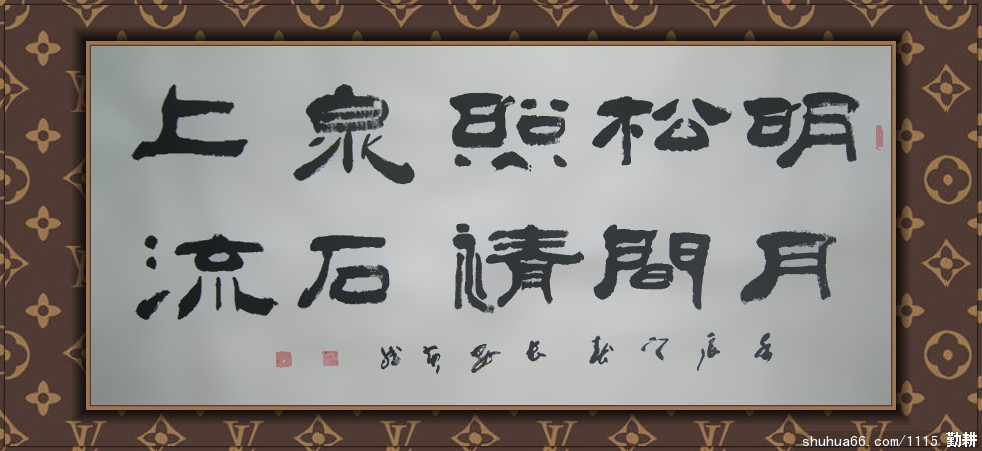 明月
松間
照清
泉石
上流
shuhua66.com/1115 勤耕